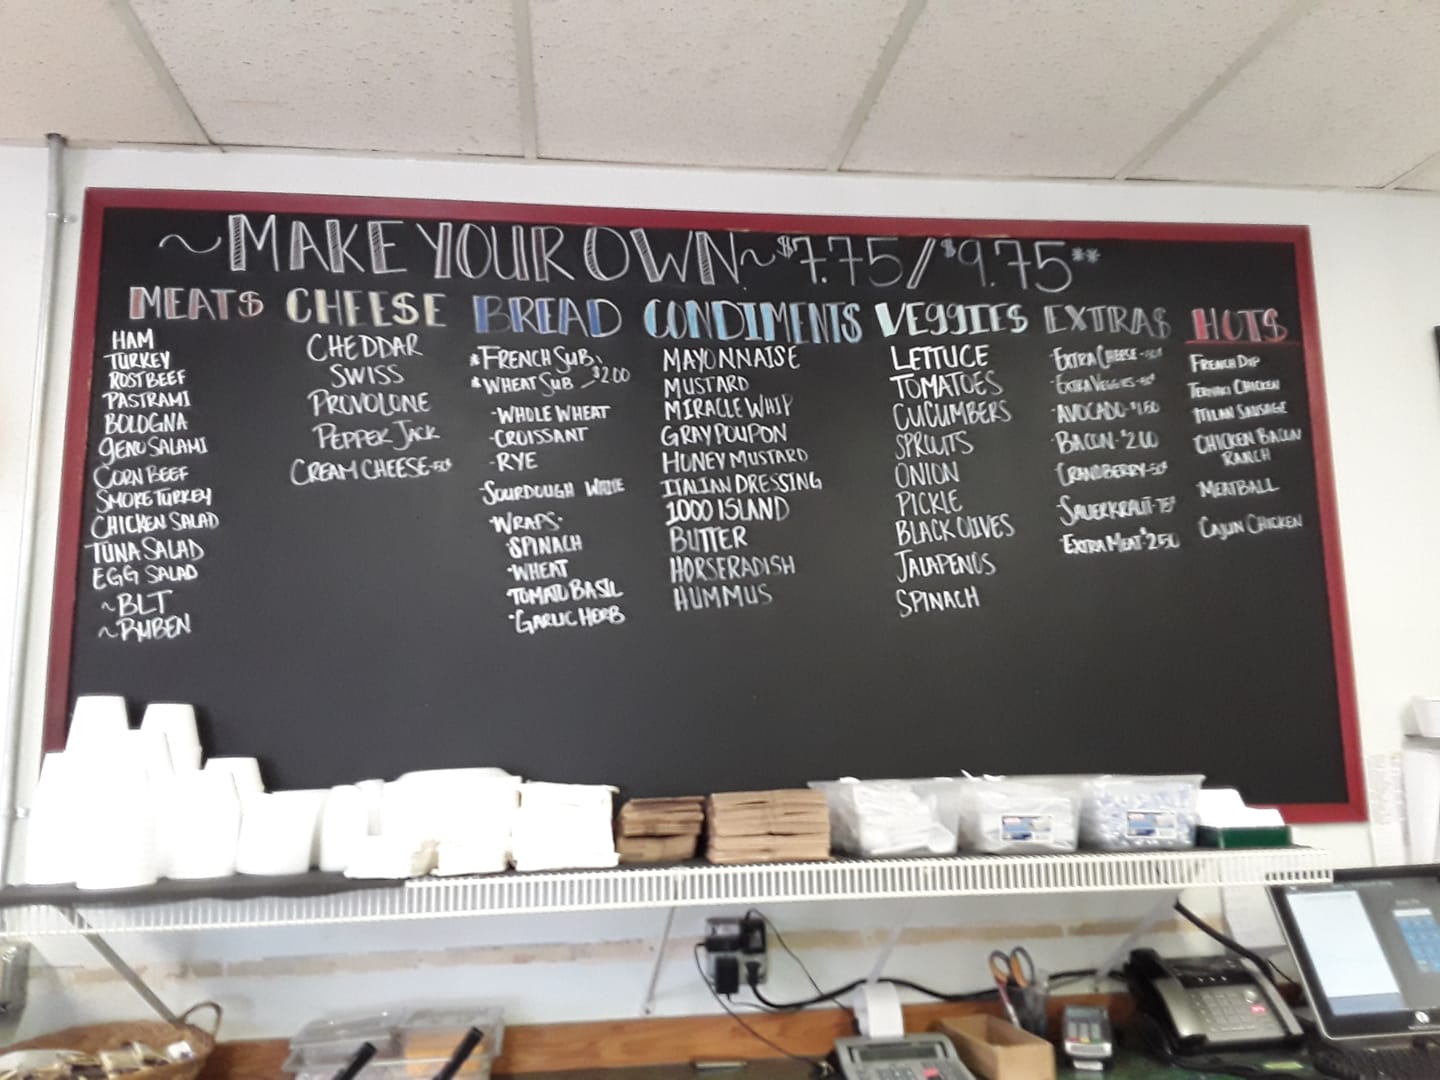 ~MAKE YOUR OWN~ $7.75/$9.75**
MEATS
HAM
TURKEY
ROST BEEF
PASTRAMI
BOLOGNA
GENO SALAMI
CORN BEEF
SMOKE TURKEY
CHICKEN SALAD
TUNA SALAD
EGG SALAD
~BLT
~RUBEN
CHEESE
CHEDDAR
SWISS
PROVOLONE
PEPPER JACK
CREAM CHEESE-50¢
BREAD
*FRENCH SUB
*WHEAT SUB - $2.00
-WHOLE WHEAT
-CROISSANT
-RYE
-SOURDOUGH WHITE
-WRAPS-
-SPINACH
-WHEAT
-TOMATO BASIL
-GARLIC HERB
CONDIMENTS
MAYONNAISE
MUSTARD
MIRACLE WHIP
GRAY POUPON
HONEY MUSTARD
ITALIAN DRESSING
1000 ISLAND
BUTTER
HORSERADISH
HUMMUS
VEGGIES
LETTUCE
TOMATOES
CUCUMBERS
SPROUTS
ONION
PICKLE
BLACK OLIVES
JALAPENOS
SPINACH
EXTRAS
-EXTRA CHEESE-50¢
-EXTRA VEGGIES-50¢
-AVOCADO-$1.50
-BACON-$2.00
-CRANBERRY-50¢
-SAUERKRAUT-75¢
-EXTRA MEAT-$2.50
HOTS
FRENCH DIP
TERIYAKI CHICKEN
-MILAN SAUSAGE
-CHICKEN BACON
RANCH
-MEATBALL
-CAJUN CHICKEN